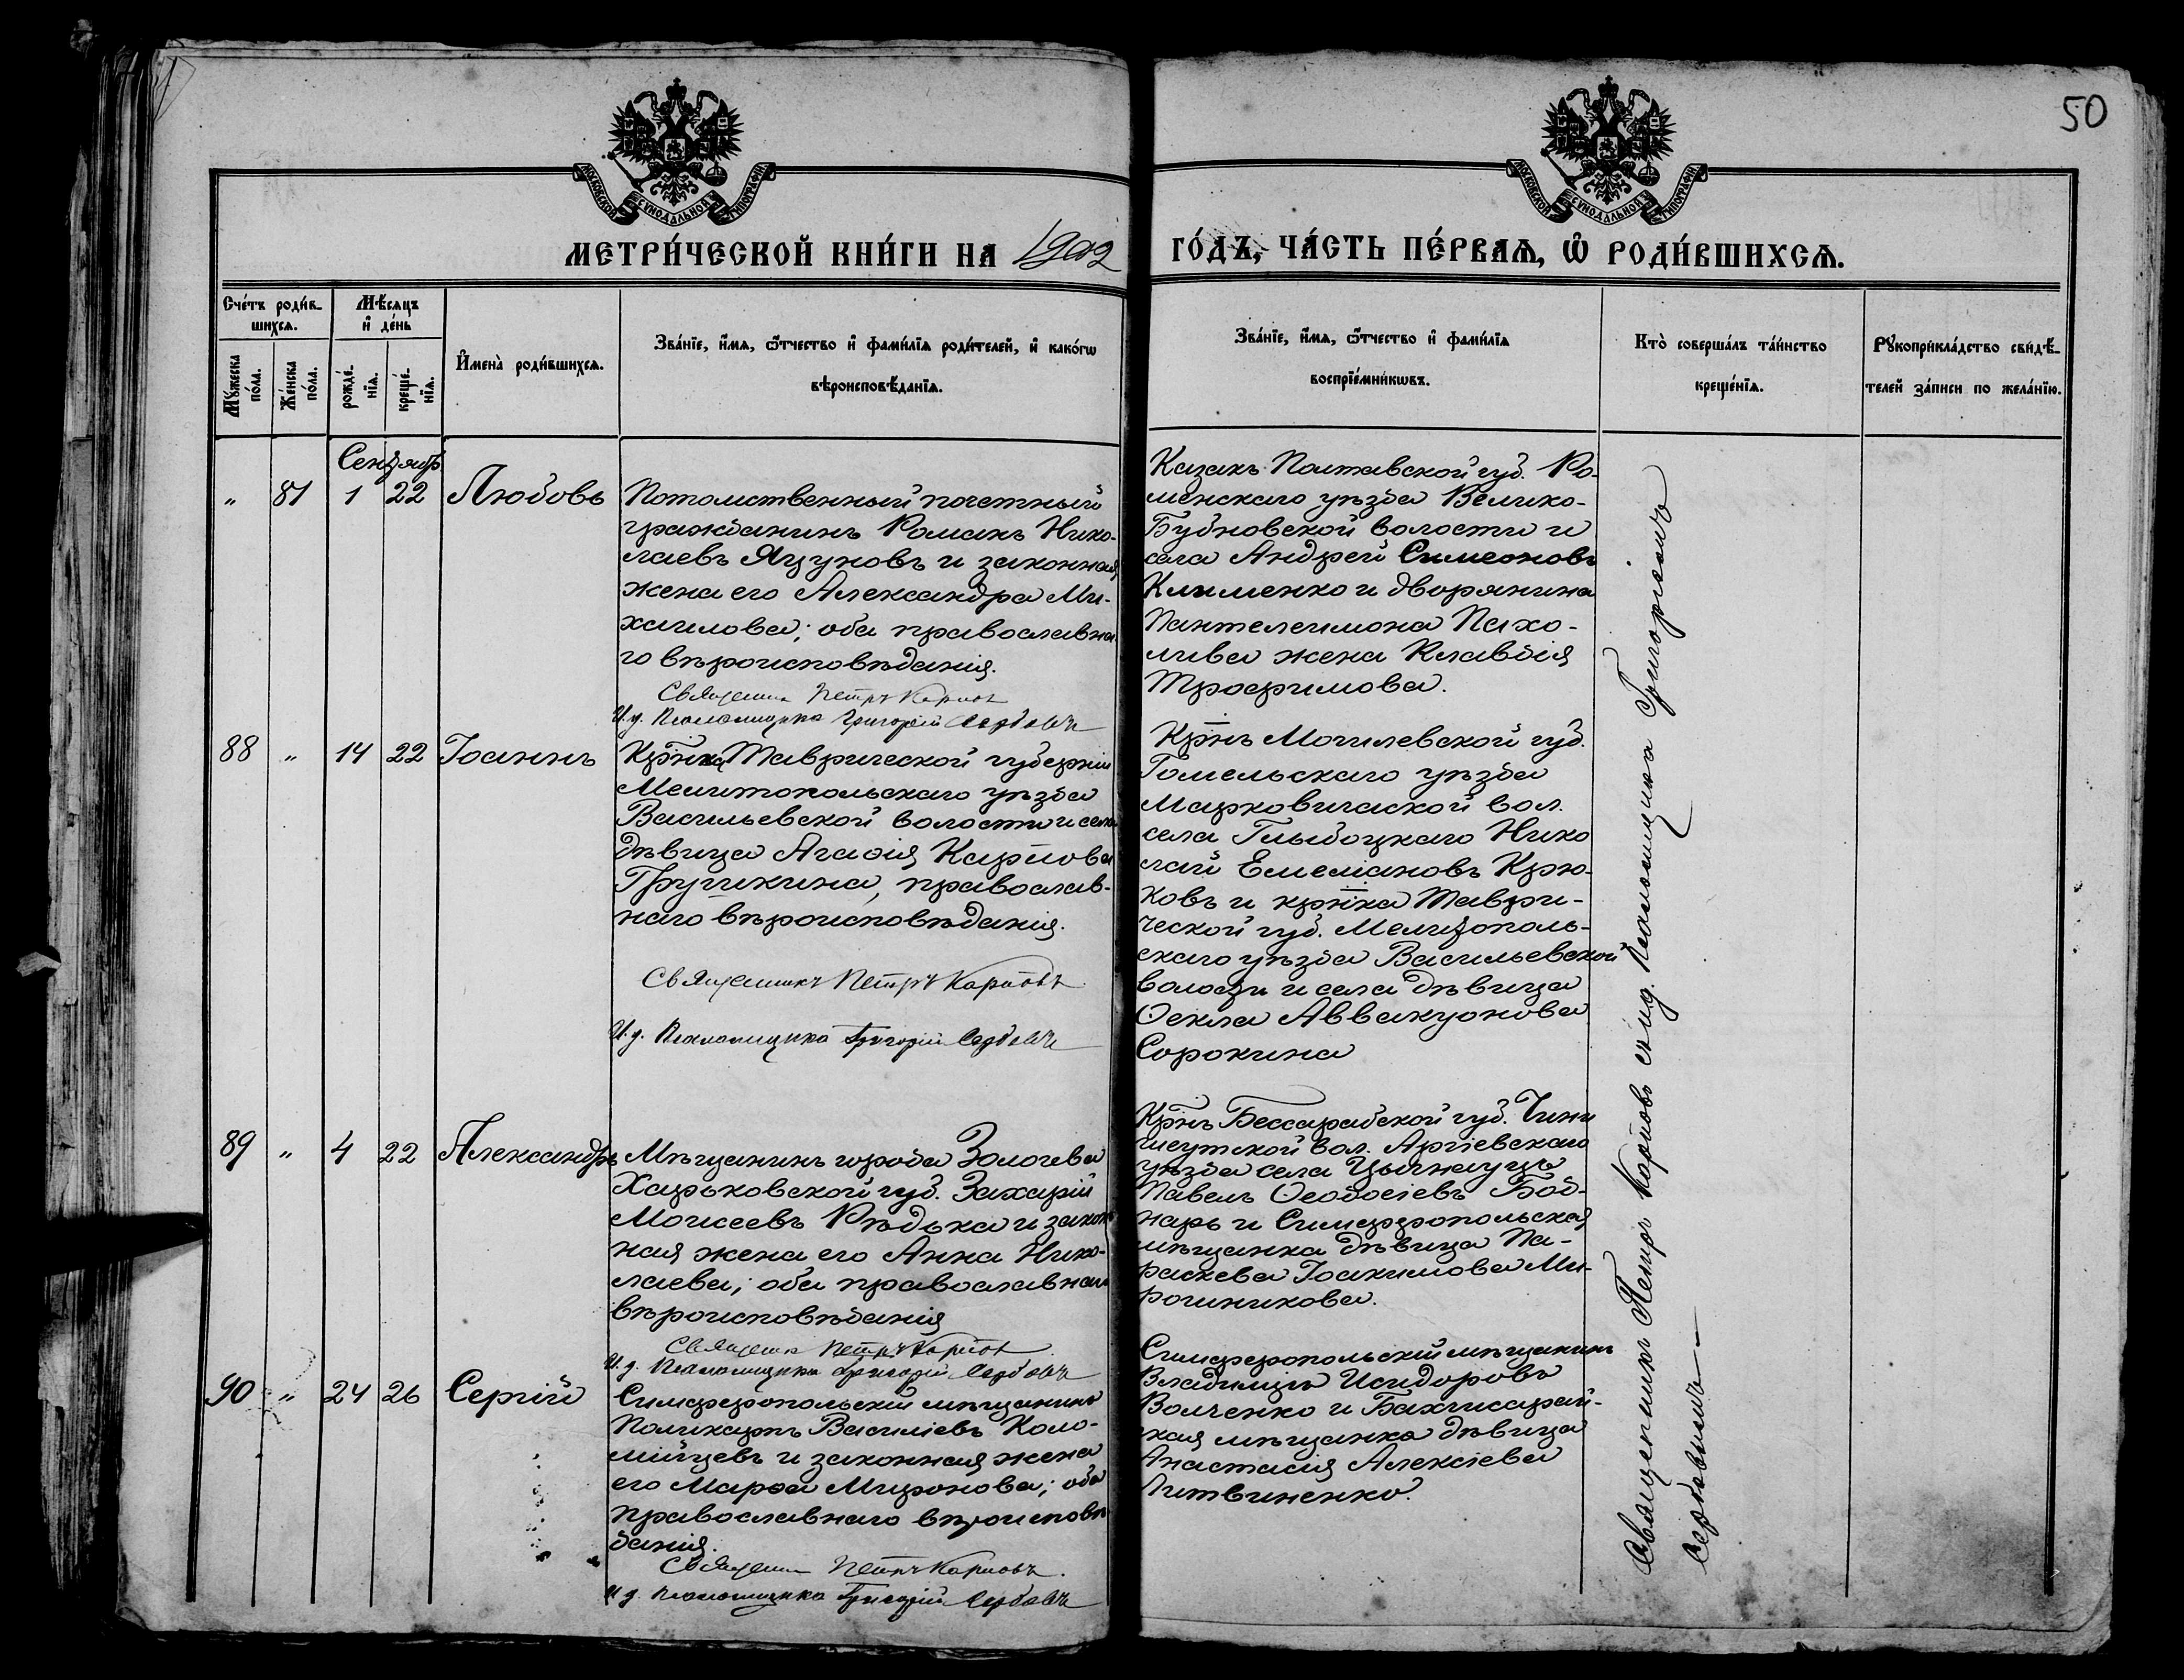 50
МОСКОВСКОЙ СУНОДАЛЬНОЙ ТИПОГРАФІИ
МОСКОВСКОЙ СУНОДАЛЬНОЙ ТИПОГРАФІИ
МЕТРИ́ЧЕСКОЙ КНИ́ГИ НА 1902
ГО́ДЪ, ЧА́СТЬ ПЕ́РВАѦ, Ѿ РОДИ́ВШИХСѦ.
Сче́тъ роди́в-
шихсѧ.
Мꙋ́жеска
по́ла.
Же́нска
по́ла.
Мѣ́сѧцъ
и҆ де́нь
рожде́-
нїѧ.
креще́-
нїѧ.
И҆мена̀ роди́вшихсѧ.
Зва́нїе, и҆́мѧ, ѻ҆́тчество и҆ фами́лїѧ роди́телей, и҆ како́гѡ
вѣроисповѣ́данїѧ.
Зва́нїе, и҆́мѧ, ѻ҆́тчество и҆ фами́лїѧ
воспрїе́мникѡвъ.
Кто̀ соверша́лъ та́инство
креще́нїѧ.
Рꙋкоприкла́дство свидѣ́-
телей за́писи по жела́нїю.
Сентябр
" 81 1 22 Любовь
Потомственный почетный
гражданинъ Романъ Нико-
лаевъ Яцуновъ и законная
жена его Александра Ми-
хаилова; оба православна
го вѣроисповѣданія.
Священник Петръ Карпов
И. д. Псаломщика Григорій Сердовичъ
Казакъ Полтавской губ. Ро-
менскаго уѣзда Велико-
Бубновской волости и
села Андрей Симеоновъ
Клименко и дворянина
Пантелеимона Пахо-
лива жена Клавдія
Трофимова.
88 " 14 22 Іоаннъ
Крнка Таврической губерніи
Мелитопольскаго уѣзда
Васильевской волости и села
дѣвица Агафія Карпова
Грушкина, православ-
наго вѣроисповѣданія.
Священникъ Петръ Карповъ
И. д. Псаломщика Григорій Сердовичъ
Крнъ Могилевской губ.
Гомельскаго уѣзда
Марковичской вол.
села Глыбоцкаго Нико
лай Емеліановъ Крю-
ковъ и крнка Таври-
ческой губ. Мелитополь-
скаго уѣзда Васильевской
волости и села дѣвица
Ѳекла Аввакумова
Сорокина
89 " 4 22 Александръ
Мѣщанинъ города Золочева
Харьковской губ. Захарій
Моисеевъ Рѣдька и закон
ная жена его Анна Нико-
лаева; оба православнаго
вѣроисповѣданія
Священник Петръ Карпов
И. д. Псаломщика Григорій Сердовичъ
Крнъ Бессарабской губ. Чини
шеутской вол. Оргѣевскаго
уѣзда села
Павелъ Ѳеодосіевъ Бод-
нарь и Симферопольская
мѣщанка дѣвица Па-
раскева Іоакимова Ми-
рошникова.
90 " 24 26 Сергій
Симферопольскій мѣщанинъ
Поликарпъ Василіевъ Коло-
мійцевъ и законная жена
его Марфа Миронова; оба
православнаго вѣроисповѣ
данія.
Священник Петръ Карповъ.
И. д. Псаломщика Григорій Сердовичъ
Симферопольскій мѣщанинъ
Владиміръ Исидоровъ
Волченко и Бахчисарай-
ская мѣщанка дѣвица
Анастасія Алексіева
Литвиненко.
Священникъ Петръ Карповъ съ и. д. Псаломщика Григоріемъ
Сердовичемъ